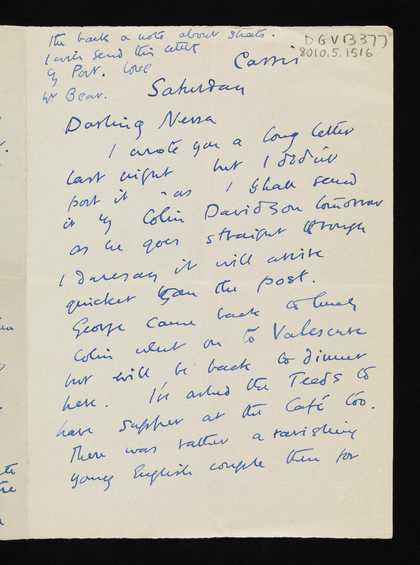 the back a note about shoes.
I will send this letter
by Post. Love
yr Bear.
DGVB377
8010.5.1516
Cassis
Saturday
Darling Nessa
I wrote you a long letter
last night but I didn't
post it - as I shall send
it by Colin Davidson tomorrow
as he goes straight through
I daresay it will arrive
quicker than the post.
George came back to lunch
Colin went on to Valescure
but will be back to dinner
here. I've asked the Teeds to
have supper at the Café too.
There was rather a ravishing
young English couple there for